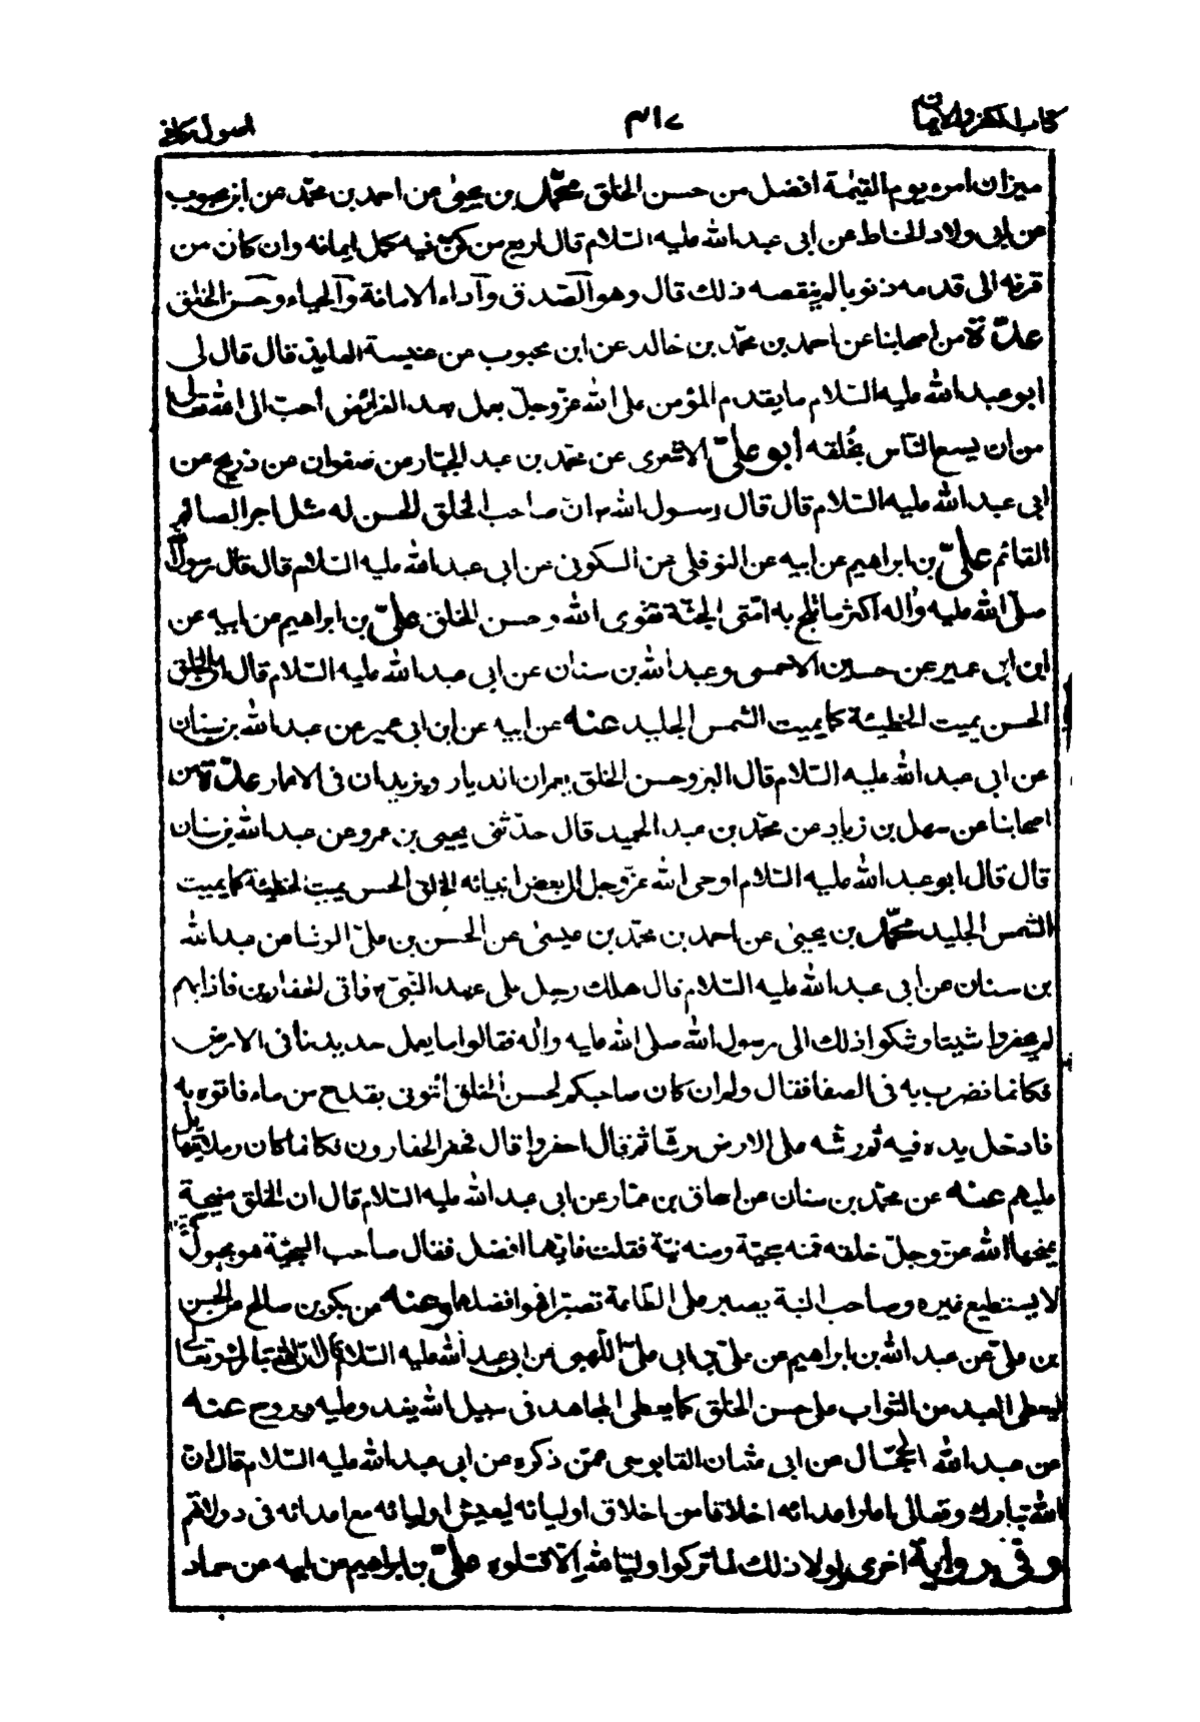 كتاب الكفر والايمان
٣١٧
اصول كافى
ميزان امرء يوم القيٰمة افضل من حسن الخلق محمّد بن يحيىٰ عن احمد بن محمّد عن ابن محبوب
عن ابى ولاد الحناط عن ابى عبد الله عليه السّلام قال اربع من كنّ فيه كمل ايمانه وان كان من
قرنه الى قدمه ذنوبا لم ينقصه ذلك قال وهو الصّدق وآداء الامانة والحياء وحسن الخلق
عدّة من اصحابنا عن احمد بن محمّد بن خالد عن ابن محبوب عن عنبسة العابد قال قال لى
ابو عبد الله عليه السّلام ما يقدم المؤمن على الله عزّ وجلّ بعمل بعد الفرائض احبّ الى الله تعالى
من ان يسع النّاس بخُلقه ابو علىّ الاشعرى عن محمّد بن عبد الجبّار عن صفوان عن ذريح عن
ابى عبد الله عليه السّلام قال قال رسول الله ص انّ صاحب الخلق الحسن له مثل اجر الصائم
القائم علىّ بن ابراهيم عن ابيه عن النوفلى عن السكونى عن ابى عبد الله عليه السّلام قال قال رسول الله
صلّى الله عليه وٰاله اكثر ما تلج به امّتى الجنّة تقوى الله وحسن الخلق علىّ بن ابراهيم عن ابيه عن
ابن ابى عمير عن حسين الاحمسى وعبد الله بن سنان عن ابى عبد الله عليه السّلام قال انّ الخلق
الحسن يميت الخطيئة كما يميت الشمس الجليد عنه عن ابيه عن ابن ابى عمير عن عبد الله بن سنان
عن ابى عبد الله عليه السّلام قال البرّ وحسن الخلق يعمران الديار ويزيدان فى الاعمار عدّة من
اصحابنا عن سهل بن زياد عن محمّد بن عبد الحميد قال حدّثنى يحيى بن عمرو عن عبد الله بن سنان
قال قال ابو عبد الله عليه السّلام اوحى الله عزّ وجل الى بعض انبيائه الخلق الحسن يميت الخطيئة كما يميت
الشمس الجليد محمّد بن يحيىٰ عن احمد بن محمّد بن عيسىٰ عن الحسن بن علىّ الوشا عن عبد الله
بن سنان عن ابى عبد الله عليه السّلام قال هلك رجل على عهد النّبىّ ص فاتى الحفارين فاذا بهم
لم يحفروا شيئا وشكوا ذلك الى رسول الله صلى الله عليه وآله فقالوا ما يعمل حديدنا فى الارض
فكانما نضرب به فى الصفا فقال ولم ان كان صاحبكم لحسن الخلق ائتونى بقدح من ماء فاتوه به
فادخل يده فيه ثم رشه على الارض رشّا ثم قال احفروا قال فحفر الحفارون فكانما كان رملا يتهايل
عليهم عنه عن محمّد بن سنان عن اسحاق بن عمّار عن ابى عبد الله عليه السّلام قال ان الخلق منيحة
يمنحها الله عزّ وجلّ خلقه فمنه سجيّة ومنه نيّة فقلت فايّهما افضل فقال صاحب السجيّة هو مجبول
لا يستطيع غيره وصاحب النية يصبر على الطاعة تصبّرا فهو افضلهما وعنه عن بكر بن صالح عن الحسن
بن علىّ عن عبد الله بن ابراهيم عن علىّ بن ابى علىّ اللّهبى عن ابى عبد الله عليه السّلام قال انّ الله تبارك وتعالى
ليعطى العبد من الثواب على حسن الخلق كما يعطى المجاهد فى سبيل الله يغدو عليه ويروح عنه
عن عبد الله الحجّال عن ابى عثمان القابوسى عمّن ذكره عن ابى عبد الله عليه السّلام قال انّ
الله تبارك وتعالى اعار اعدائه اخلاقا من اخلاق اوليائه ليعيش اوليائه مع اعدائه فى دولاتهم
وفى رواية اخرى ولولا ذلك لما تركوا وليّا لله الّا قتلوه علىّ بن ابراهيم عن ابيه عن حماد